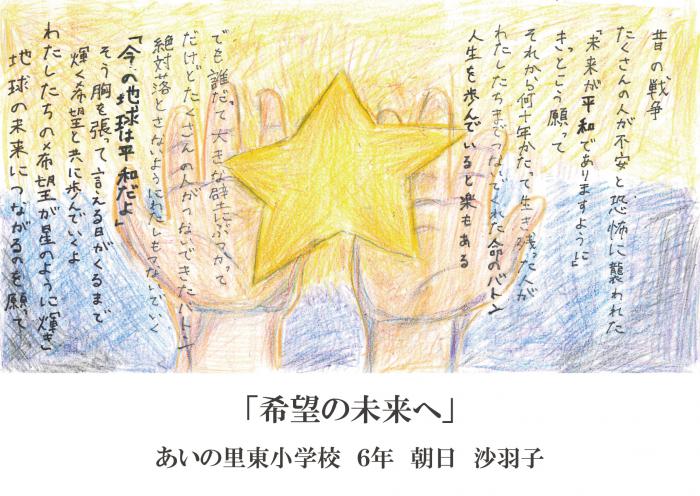 昔の戦争
たくさんの人が不安と恐怖に襲われた
「未来が平和でありますように」
きっとこう願って
それから何十年かたって生き残った人が
わたしたちまでつないでくれた命のバトン
人生を歩んでいると楽もある
でも誰だって大きな壁にぶつかって
だけどたくさんの人がつないできたバトン
絶対落とさないようにわたしもつないでいく
「今の地球は平和だよ」
そう胸を張って言える日がくるまで
輝く希望と共に歩んでいくよ
わたしたちの希望が星のように輝き
地球の未来につながるのを願って
「希望の未来へ」
あいの里東小学校 6年 朝日 沙羽子